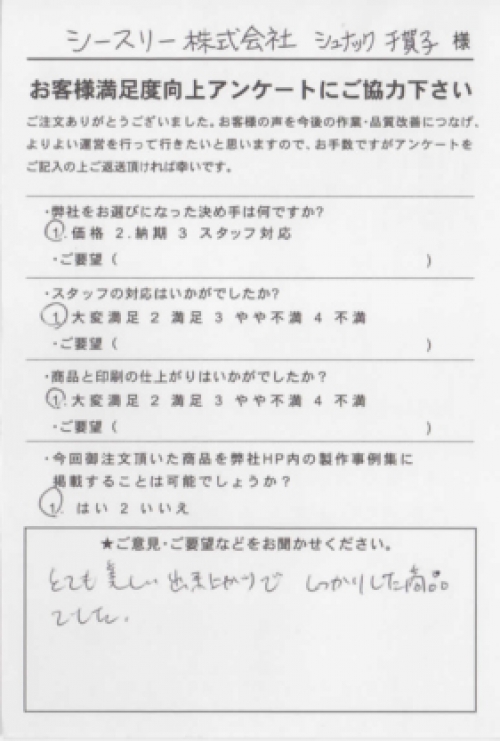 シースリー 株式会社 シュナック 貴子 様
お客様満足度向上アンケートにご協力下さい
ご注文ありがとうございました。お客様の声を今後の作業・品質改善につなげ、
よりよい運営を行って行きたいと思いますので、お手数ですがアンケートを
ご記入の上ご返送頂ければ幸いです。
・弊社をお選びになった決め手は何ですか?
1.価格 2.納期 3 スタッフ対応
・ご要望( )
・スタッフの対応はいかがでしたか?
1 大変満足 2 満足 3 やや不満 4 不満
・ご要望( )
・商品と印刷の仕上がりはいかがでしたか?
1.大変満足 2 満足 3 やや不満 4 不満
・ご要望( )
・今回御注文頂いた商品を弊社HP内の製作事例集に
掲載することは可能でしょうか?
1. はい 2 いいえ
★ご意見・ご要望などをお聞かせください。
とても美しい出来上がりで しっかりした商品
でした。